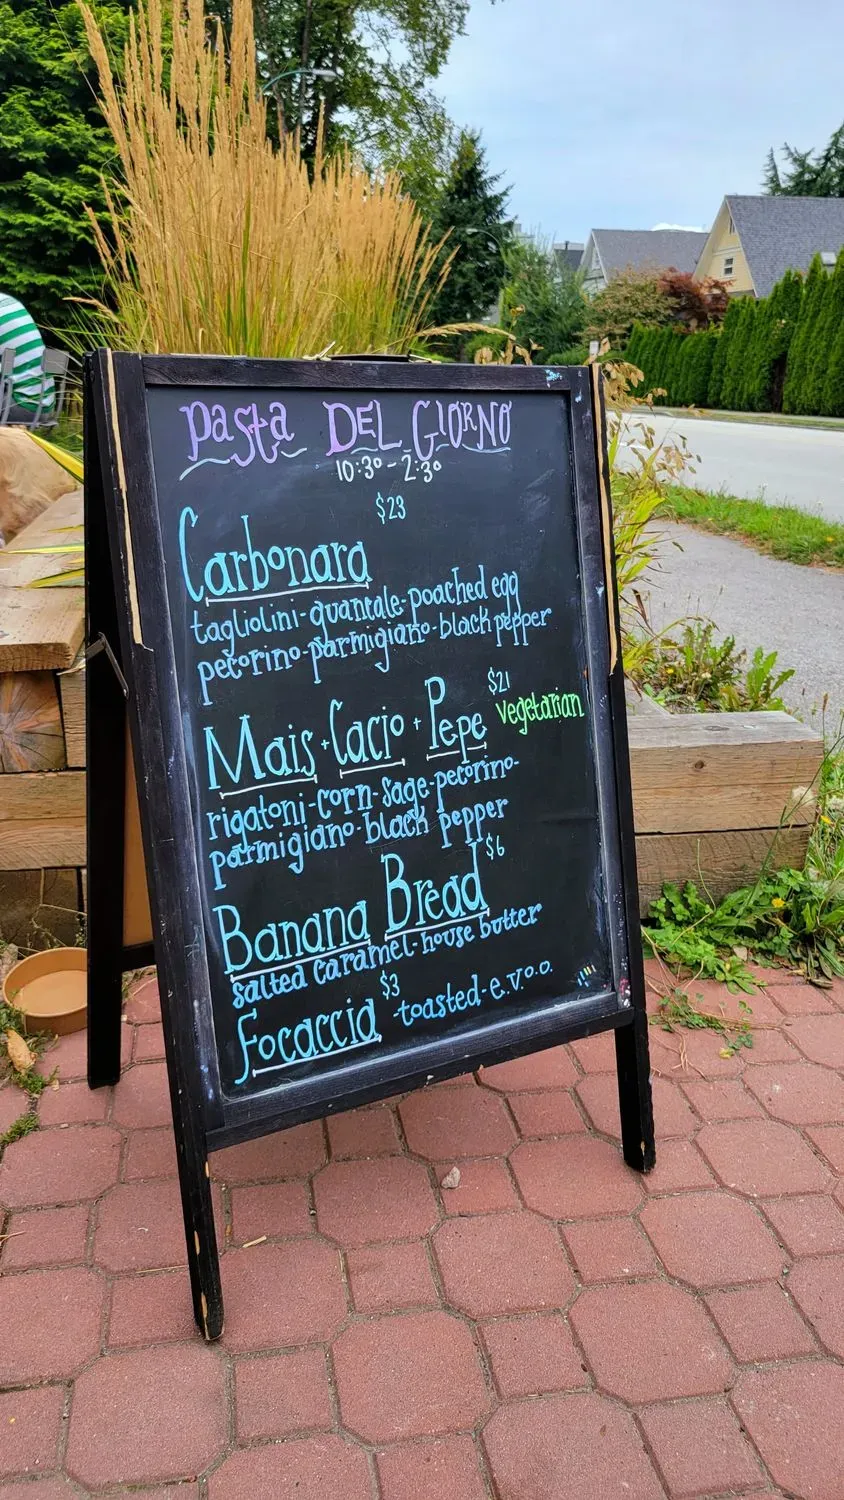 Pasta DEL GIORNO
10:30 - 2:30
$23
Carbonara
tagliolini-guanciale-poached egg
pecorino-parmigiano-black pepper
$21
Mais + Cacio + Pepe vegetarian
rigatoni-corn-sage-pecorino-
parmigiano-black pepper
$6
Banana Bread
salted caramel-house butter
$3
Focaccia -toasted-e.v.o.o.